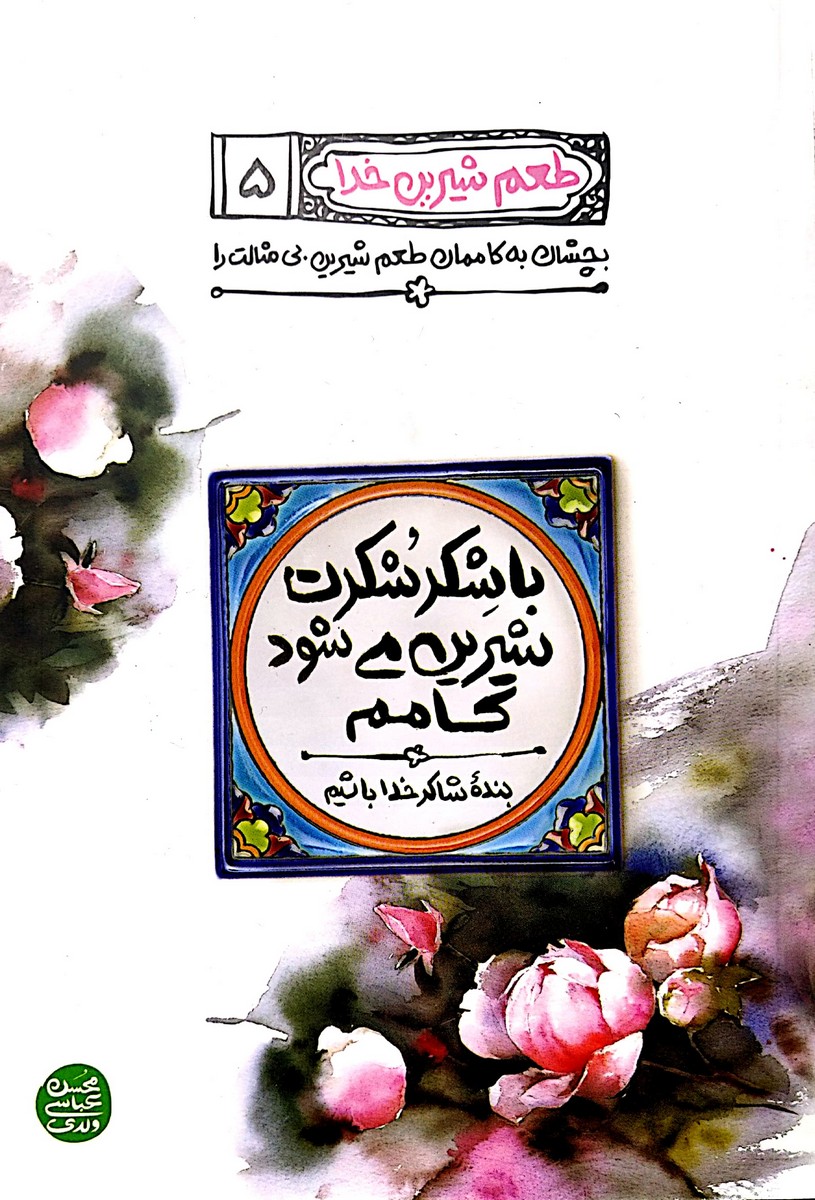 طعم شیرین خدا
۵
بچشان به کاممان طعم شیرین بی مثالت را
با شِکر شُکرت
شیرین می شود
کامم
بندهٔ شاکر خدا باشیم
محسن
عباسی
ولدی